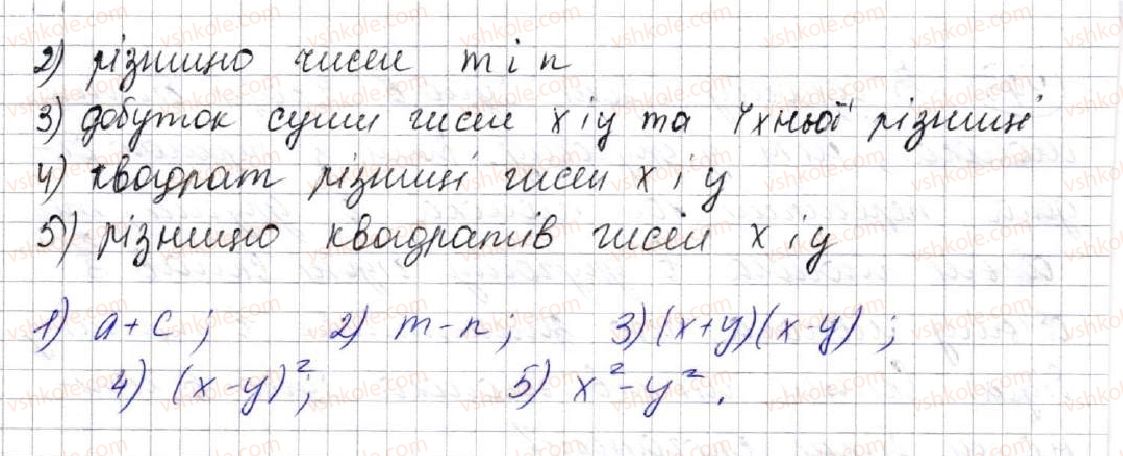 2) різницю чисел m і n
3) добуток суми чисел x і y та їхньої різниці
4) квадрат різниці чисел x і y
5) різницю квадратів чисел x і y
1) a + c ; 2) m - n ; 3) (x+y)(x-y) ;
4) (x - y)² ; 5) x² - y² .